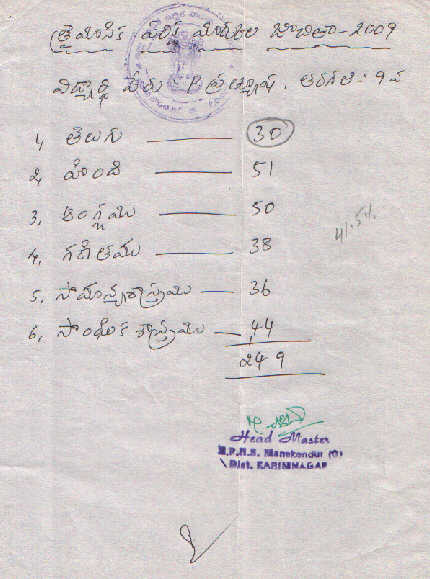 త్రైమాసిక పరీక్ష మార్కుల జాబితా - 2009
విద్యార్థి పేరు తరగతి : 9వ
1, తెలుగు — 30
2, హింది — 51
3, ఆంగ్లము — 50
41.5%
4, గణితము — 38
5. సామాన్యశాస్త్రము — 36
6, సాంఘీక శాస్త్రము — 44
249
Head Master
Z.P.H.S. Manakondur (G)
Dist. KARIMNAGAR